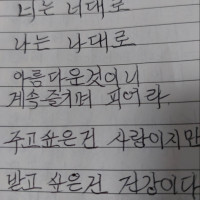 너는 너대로
나는 나대로
아름다운것이니
계속즐기며 피어라.
주고싶은건 사랑이지만
받고 싶은건 건강이다